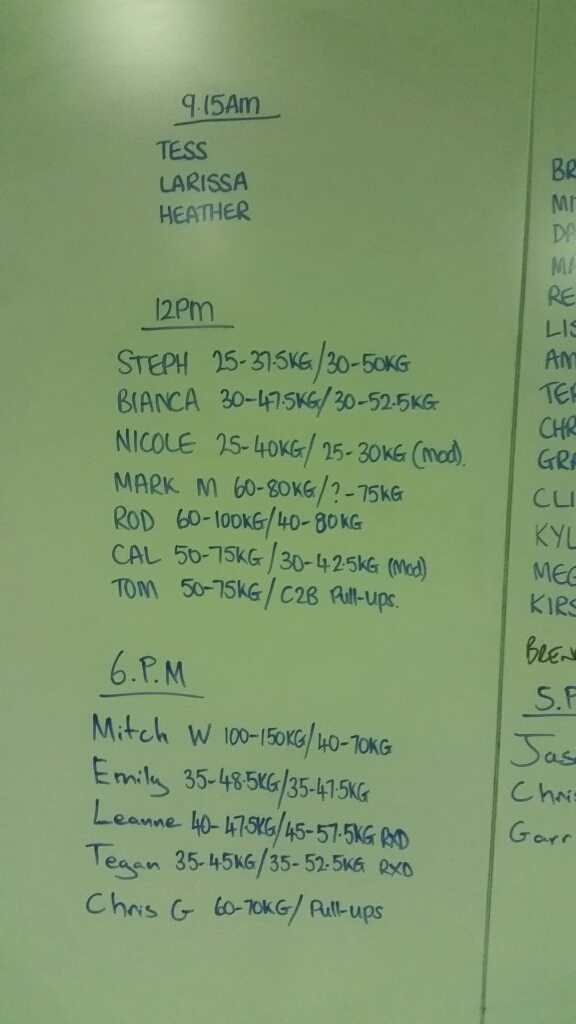 9.15Am
TESS
LARISSA
HEATHER
12PM
STEPH 25-37.5KG/30-50KG
BIANCA 30-47.5KG/30-52.5KG
NICOLE 25-40KG/ 25-30KG (mod).
MARK M 60-80KG/?-75KG
ROD 60-100KG/40-80KG
CAL 50-75KG/30-42.5KG (Mod)
TOM 50-75KG/C2B Pull-ups.
6.P.M
Mitch W 100-150KG/40-70KG
Emily 35-48.5KG/35-47.5KG
Leanne 40-47.5KG/45-57.5KG RXD
Tegan 35-45KG/35-52.5KG RXD
Chris G 60-70KG/ Pull-ups
BR
MI
MA
RE
LIS
AM
TER
CHR
GRA
CLI
KYL
MEG
KIRS
BREN
5.P
Jas
Chris
Garr